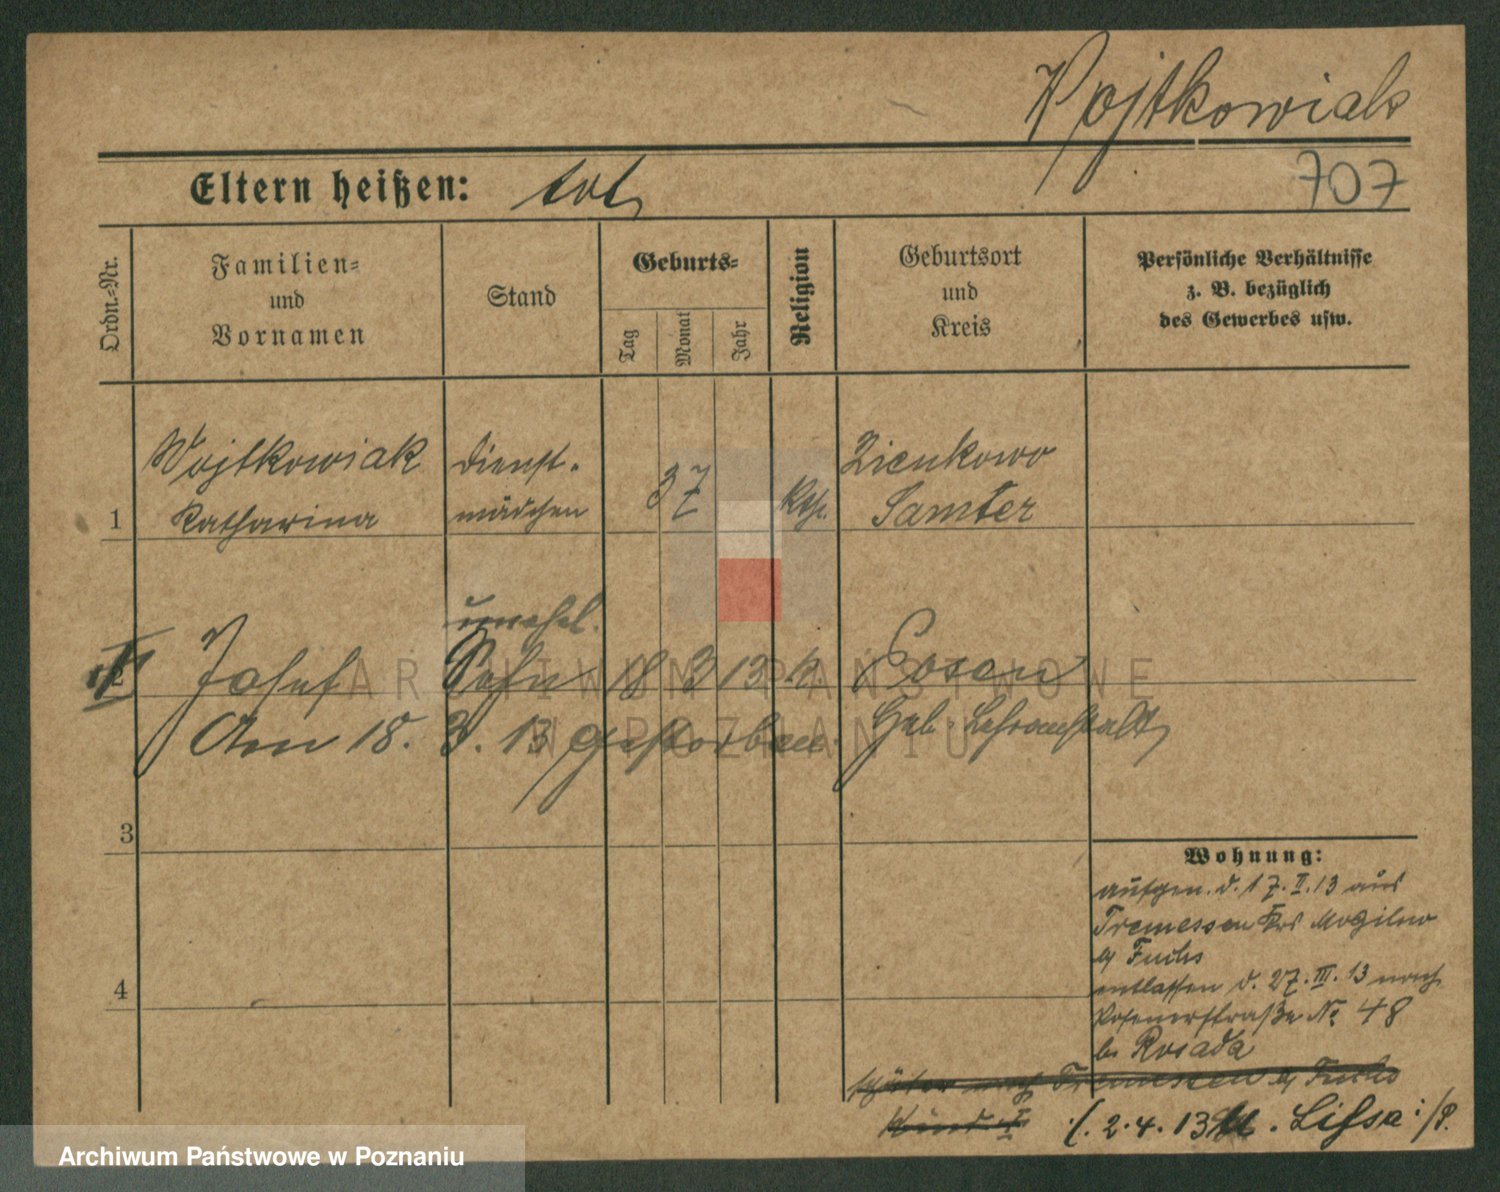 Wojtkowiak
Eltern heißen: tot,
707
Ordn=Nr.
Familien=
und
Vornamen
Stand
Geburts=
Tag
Monat
Jahr
Religion
Geburtsort
und
Kreis
Persönliche Verhältnisse
z. B. bezüglich
des Gewerbes usw.
Wojtkowiak
Katharina
Dienst-
mädchen
37
Kth.
Zienkowo
Samter
1
unehel.
2
Josef
Sohn
18 3 13
k.
Posen
Am 18. 3. 13 gestorben.
Heb. Lehranstalt,
3
4
Wohnung:
aufgen. d. 17. II. 13 aus
Tremessen Krs Mogilno
b/ Fuchs
entlassen d. 27. III. 13 nach
Posenerstraße No 48
b. Rosada
später nach Tremessen b/ Fuchs
Kind I
/. 2. 4. 13 . Lissa :/P.
ARCHIWUM PAŃSTWOWE
W POZNANIU
Archiwum Państwowe w Poznaniu